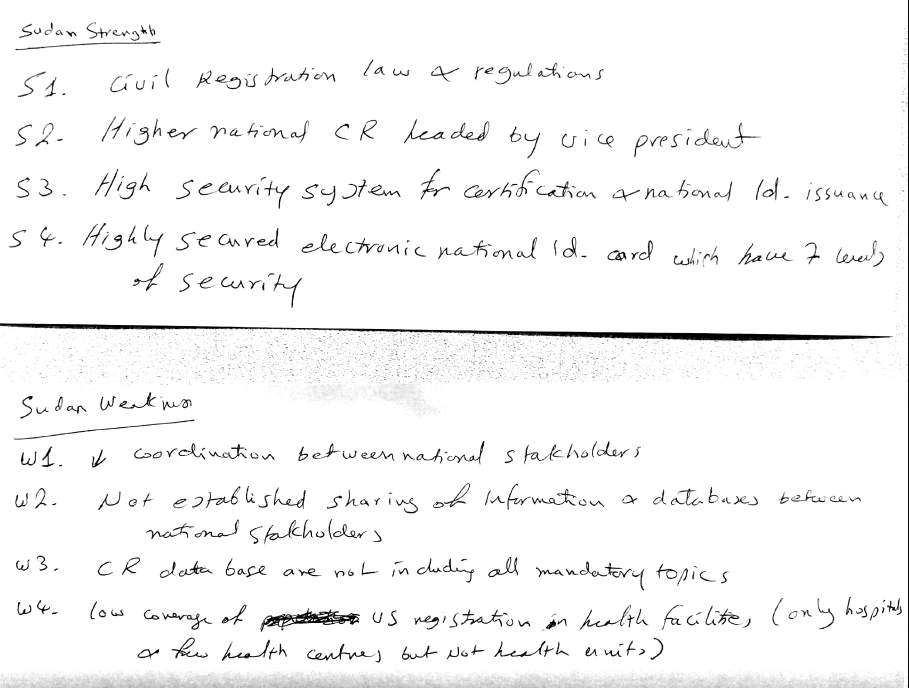 Sudan Strength
S1. Civil Registration law & regulations
S2- Higher national CR headed by vice president
S3. High security system for certification & national Id. issuance
S4. Highly secured electronic national id. card which have 7 levels
of security
Sudan Weakness
W1. ↓ coordination between national stakholders
W2. Not established sharing of Information & databases between
national stakholders
W3. CR data base are not including all mandatory topics
W4- low coverage of US registration in health facilities (only hospitals
& few health centres but Not health units)